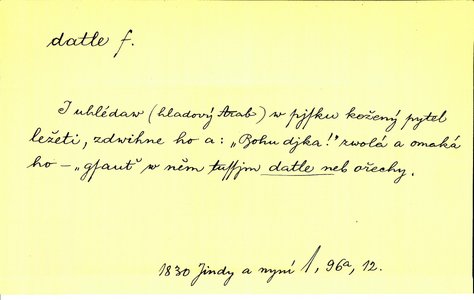 datle f.
I uhlédaw (hladový Arab) w pjſku kožený pytel
ležeti, zdwihne ho a: „Bohu djka!" zwolá a omaká
ho – „gſauť w něm tuſſjm datle neb ořechy.
1830 Jindy a nyní 1, 96a, 12.